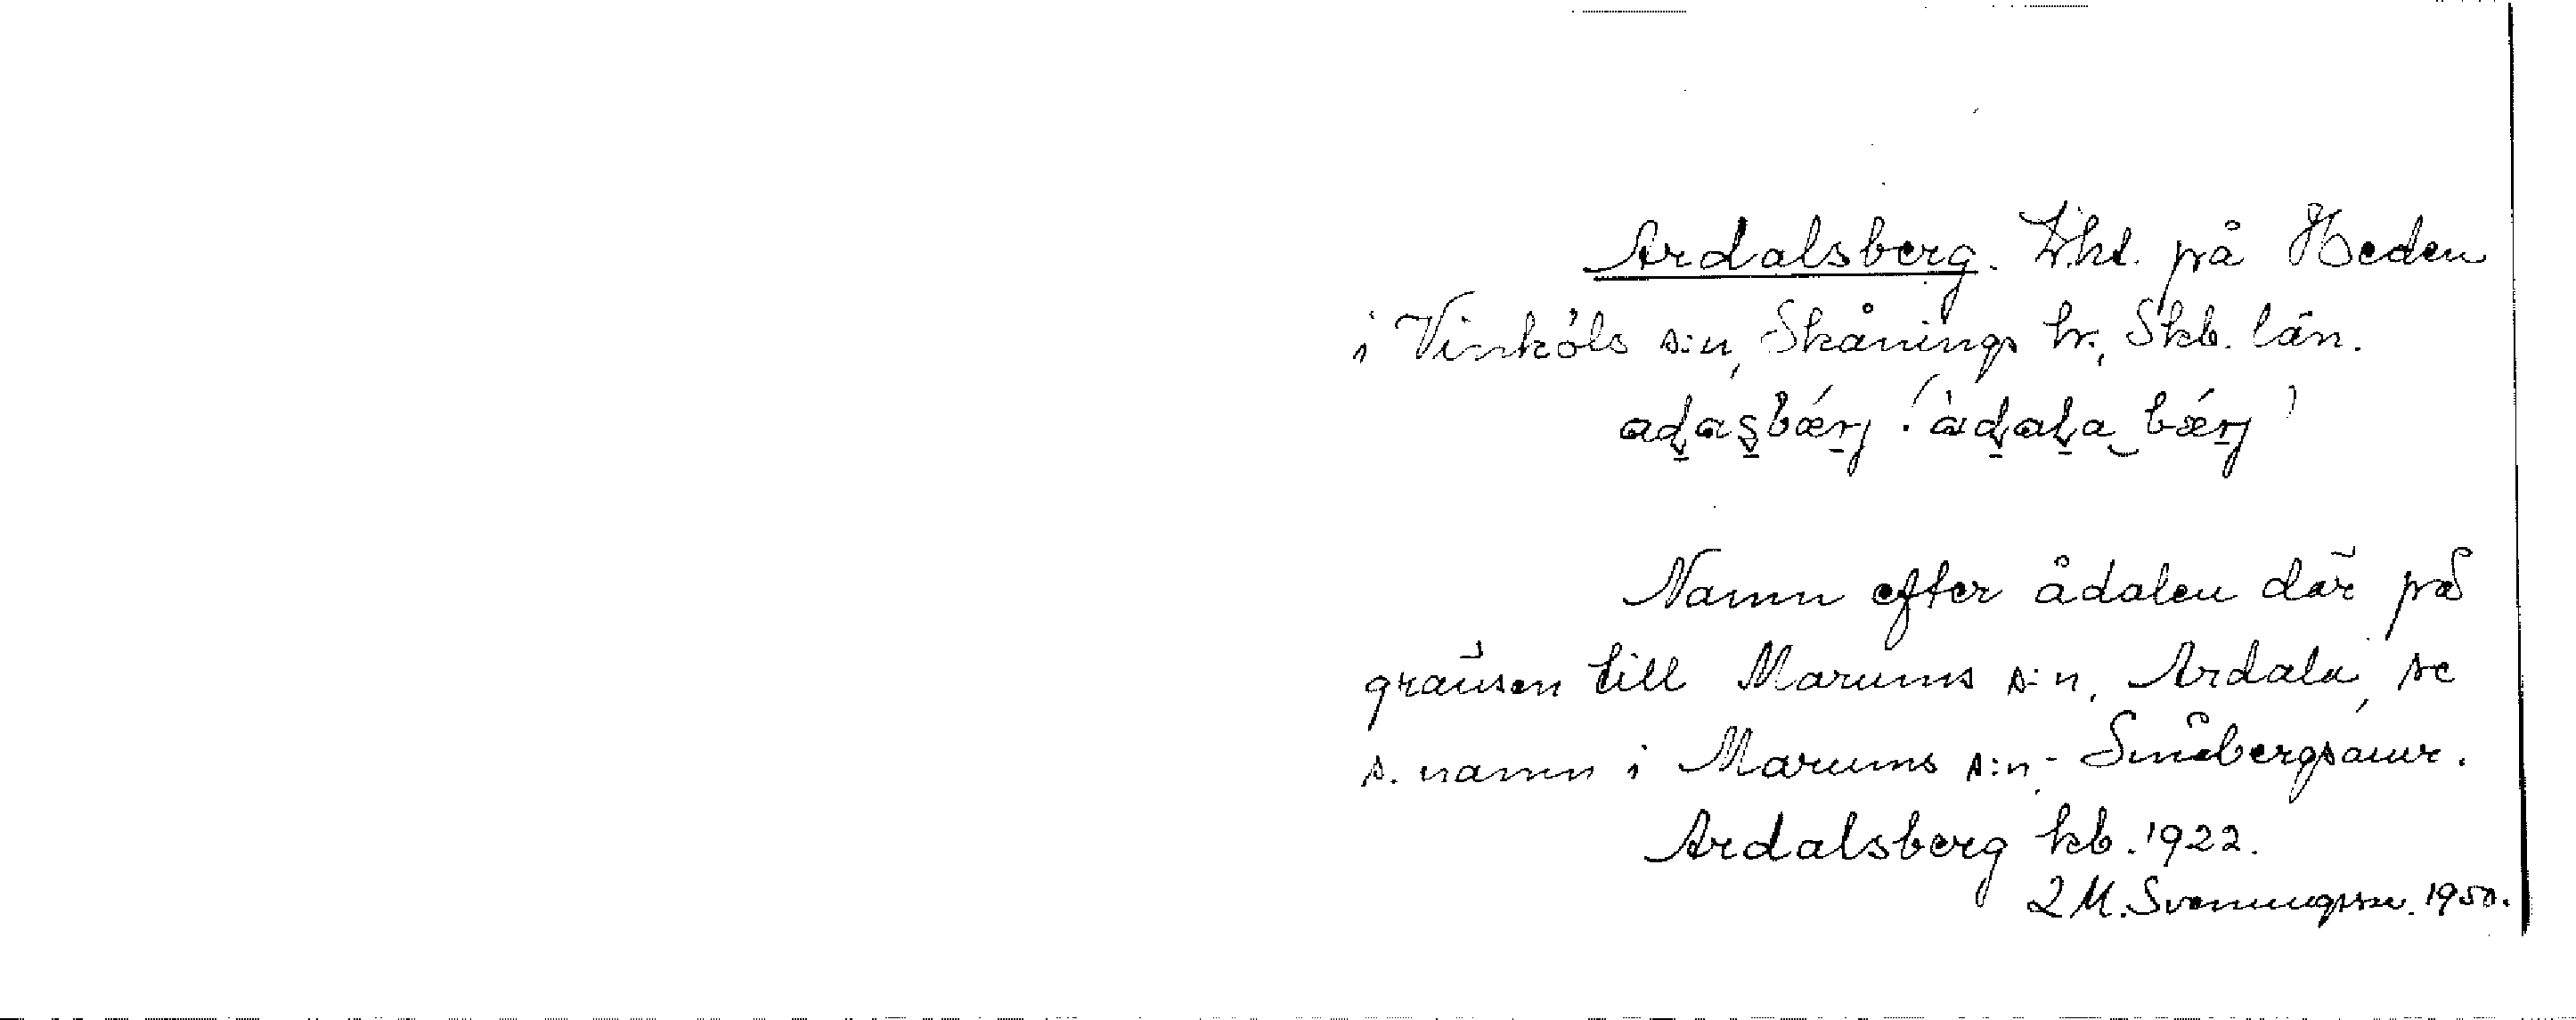 Ardalsberg. Lht. på Heden
i Vinköls s:n, Skånings hr., Skb. län.
adasbǽrj (àdala bǽrj)
Namn efter ådalen där på
gränsen till Marums s:n, Ardala, se
s. namn i Marums s:n. Småbergsamr.
Ardalsberg kb. 1922.
M. Svenungsson. 1950.